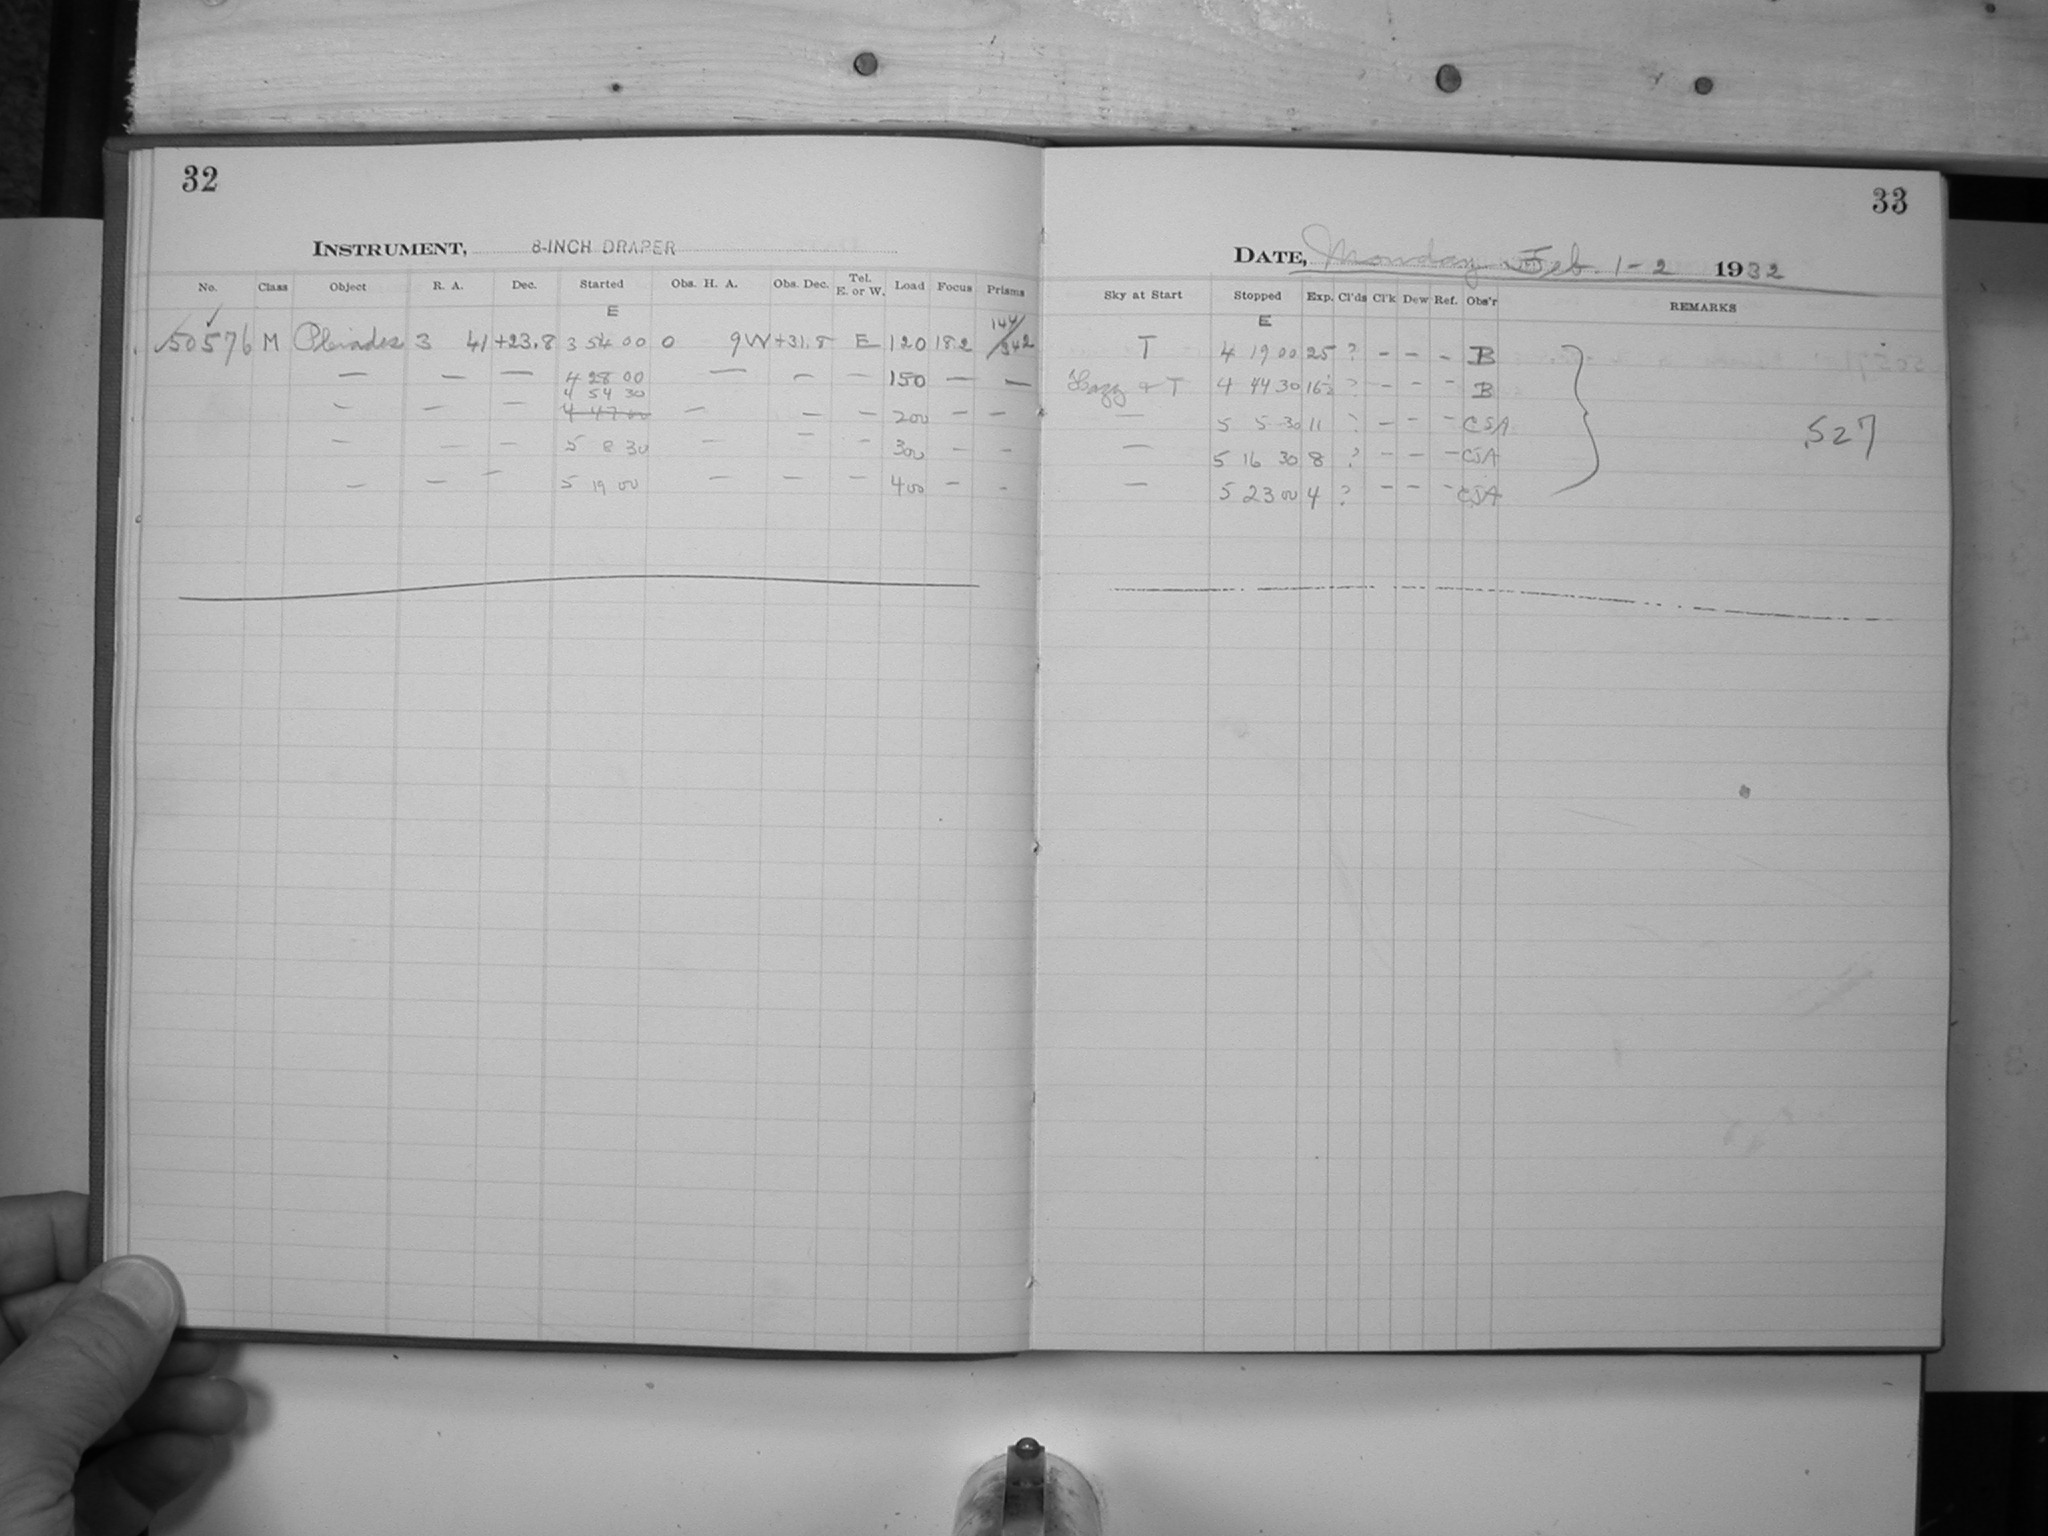 32
INSTRUMENT, 8-INCH DRAPER
No. Class Object R. A. Dec. Started Obs. H. A. Obs. Dec. Tel. E. or W. Load Focus Prisms
E
50576 M Pleiades 3 41 +23.8 3 54 00 0 9W +31.8 E 120 18.2
— — — 4 28 00 — — — 150 — —
4 54 30
— — — 4 47 00 — — — 200 — —
— — — 5 8 30 — — — 300 — —
— — — 5 19 00 — — — 400 — -
33
DATE, Monday Feb. 1-2 1932
Sky at Start Stopped Exp. Cl'ds Cl'k Dew Ref. Obs'r REMARKS
E
T 4 19 00 25 ? - - - B
Hazy + T 4 44 30 16½ ? - - - B
— 5 5 30 11 ? - - - CSA
— 5 16 30 8 ? - - - CSA
— 5 23 00 4 ? - - - CSA
.527